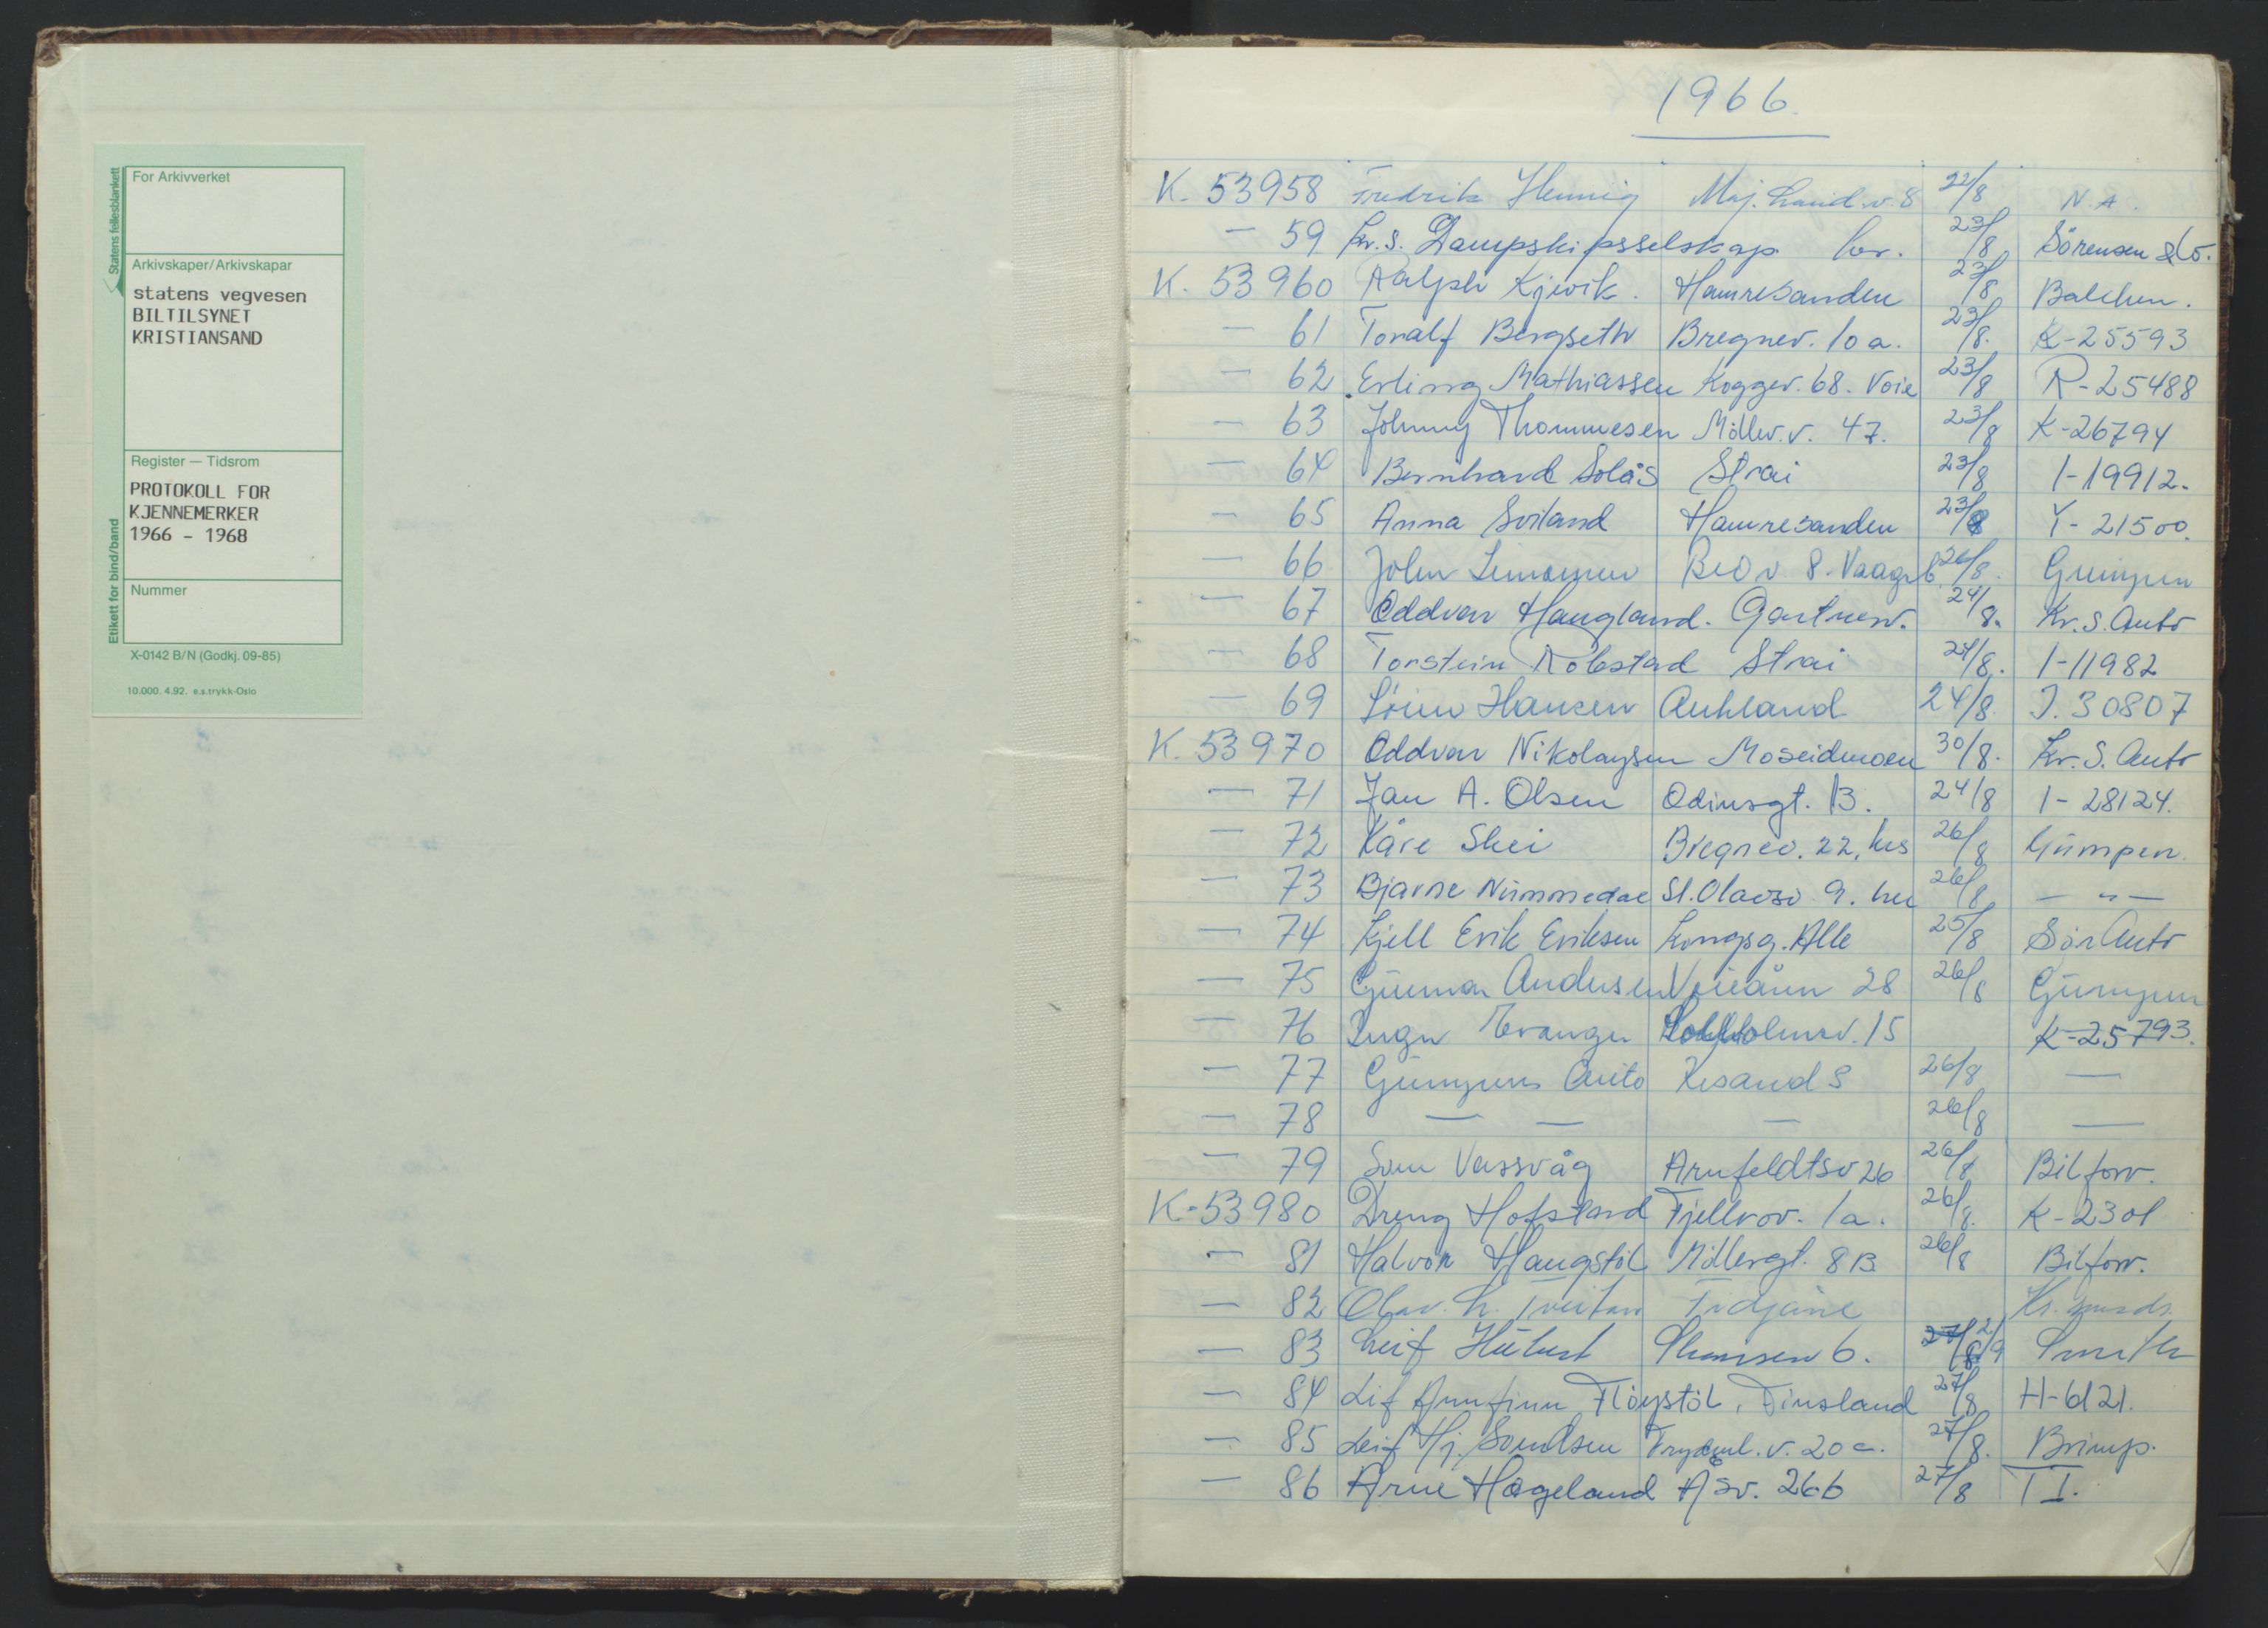 For Arkivverket
Arkivskaper/Arkivskapar
statens vegvesen
BILTILSYNET
KRISTIANSAND
Register — Tidsrom
PROTOKOLL FOR
KJENNEMERKER
1966 - 1968
Nummer
X-0142 B/N (Godkj. 09-85)
10.000. 4.92. e.s.trykk-Oslo
Etikett for bind/band
Statens fellesblankett
1966.
K. 53958 Fredrik Hennig Maj. v. 8 22/8 N.A.
— 59 Kr.S. Dampskipsselskap 23/8 Sörensen & Co.
K. 53960 Ralph Kjevik. Hamresanden 23/8 Balchen.
— 61 Toralf Bergseth Bregnev. 10 a. 23/8. K-25593
— 62 Erling Mathiassen Koggev. 68. Voie 23/8 R-25488
— 63 Johnny Thommesen Möllev. v. 47. 23/8 K-26794
— 64 Bernhard Solås Strai 23/8 I-19912.
— 65 Anna Sviland Hamresanden 23/8 Y-21500.
— 66 John 8. Vaagsb. 26/8. Gumpen
— 67 Oddvar Haugland. Gartnerv. 24/8. Kr.S. Auto
— 68 Torstein Nolestad Strai 24/8. I-11982
— 69 Hansen Aukland 24/8. J. 30807
K. 53970 Oddvar Nikolaysen Moseidmoen 30/8. Kr.S. Auto
— 71 Jan A. Olsen Odinsgt. 13. 24/8 I-28124.
— 72 Kåre Skei Bregnev. 22, krs 26/8 Gumpen.
— 73 Bjarne Nummedal St. Olavsv 9. 26/8 — " —
— 74 Kjell Erik Eriksen Kongsg. Alle 25/8 Sör Auto
— 75 Gunnar Andersen Voieåsen 28 26/8 Gumpen
— 76 15 K-25793.
— 77 Gumpens Auto Krsand S 26/8 —
— 78 — — — 26/8 —
— 79 Vassvåg Arnfeldtsv 26 26/8 Bilforr.
K-53980 Dreng Hofstad Fjellrov. 1a. 26/8. K-2301
— 81 Halvor Haugstöl Möllergt. 8B 26/8 Bilforr.
— 82 Olav. Treitan Tridjane Kr.
— 83 Leif 6. 27/8 2/9 Smith
— 84 Lif Arnfinn Flöystöl, Finsland 27/8 H-6121.
— 85 Leif Hj. Svendsen v. 20 c. 27/8. Brimp.
— 86 Arne Hageland Åsv. 26b 27/8 TI.